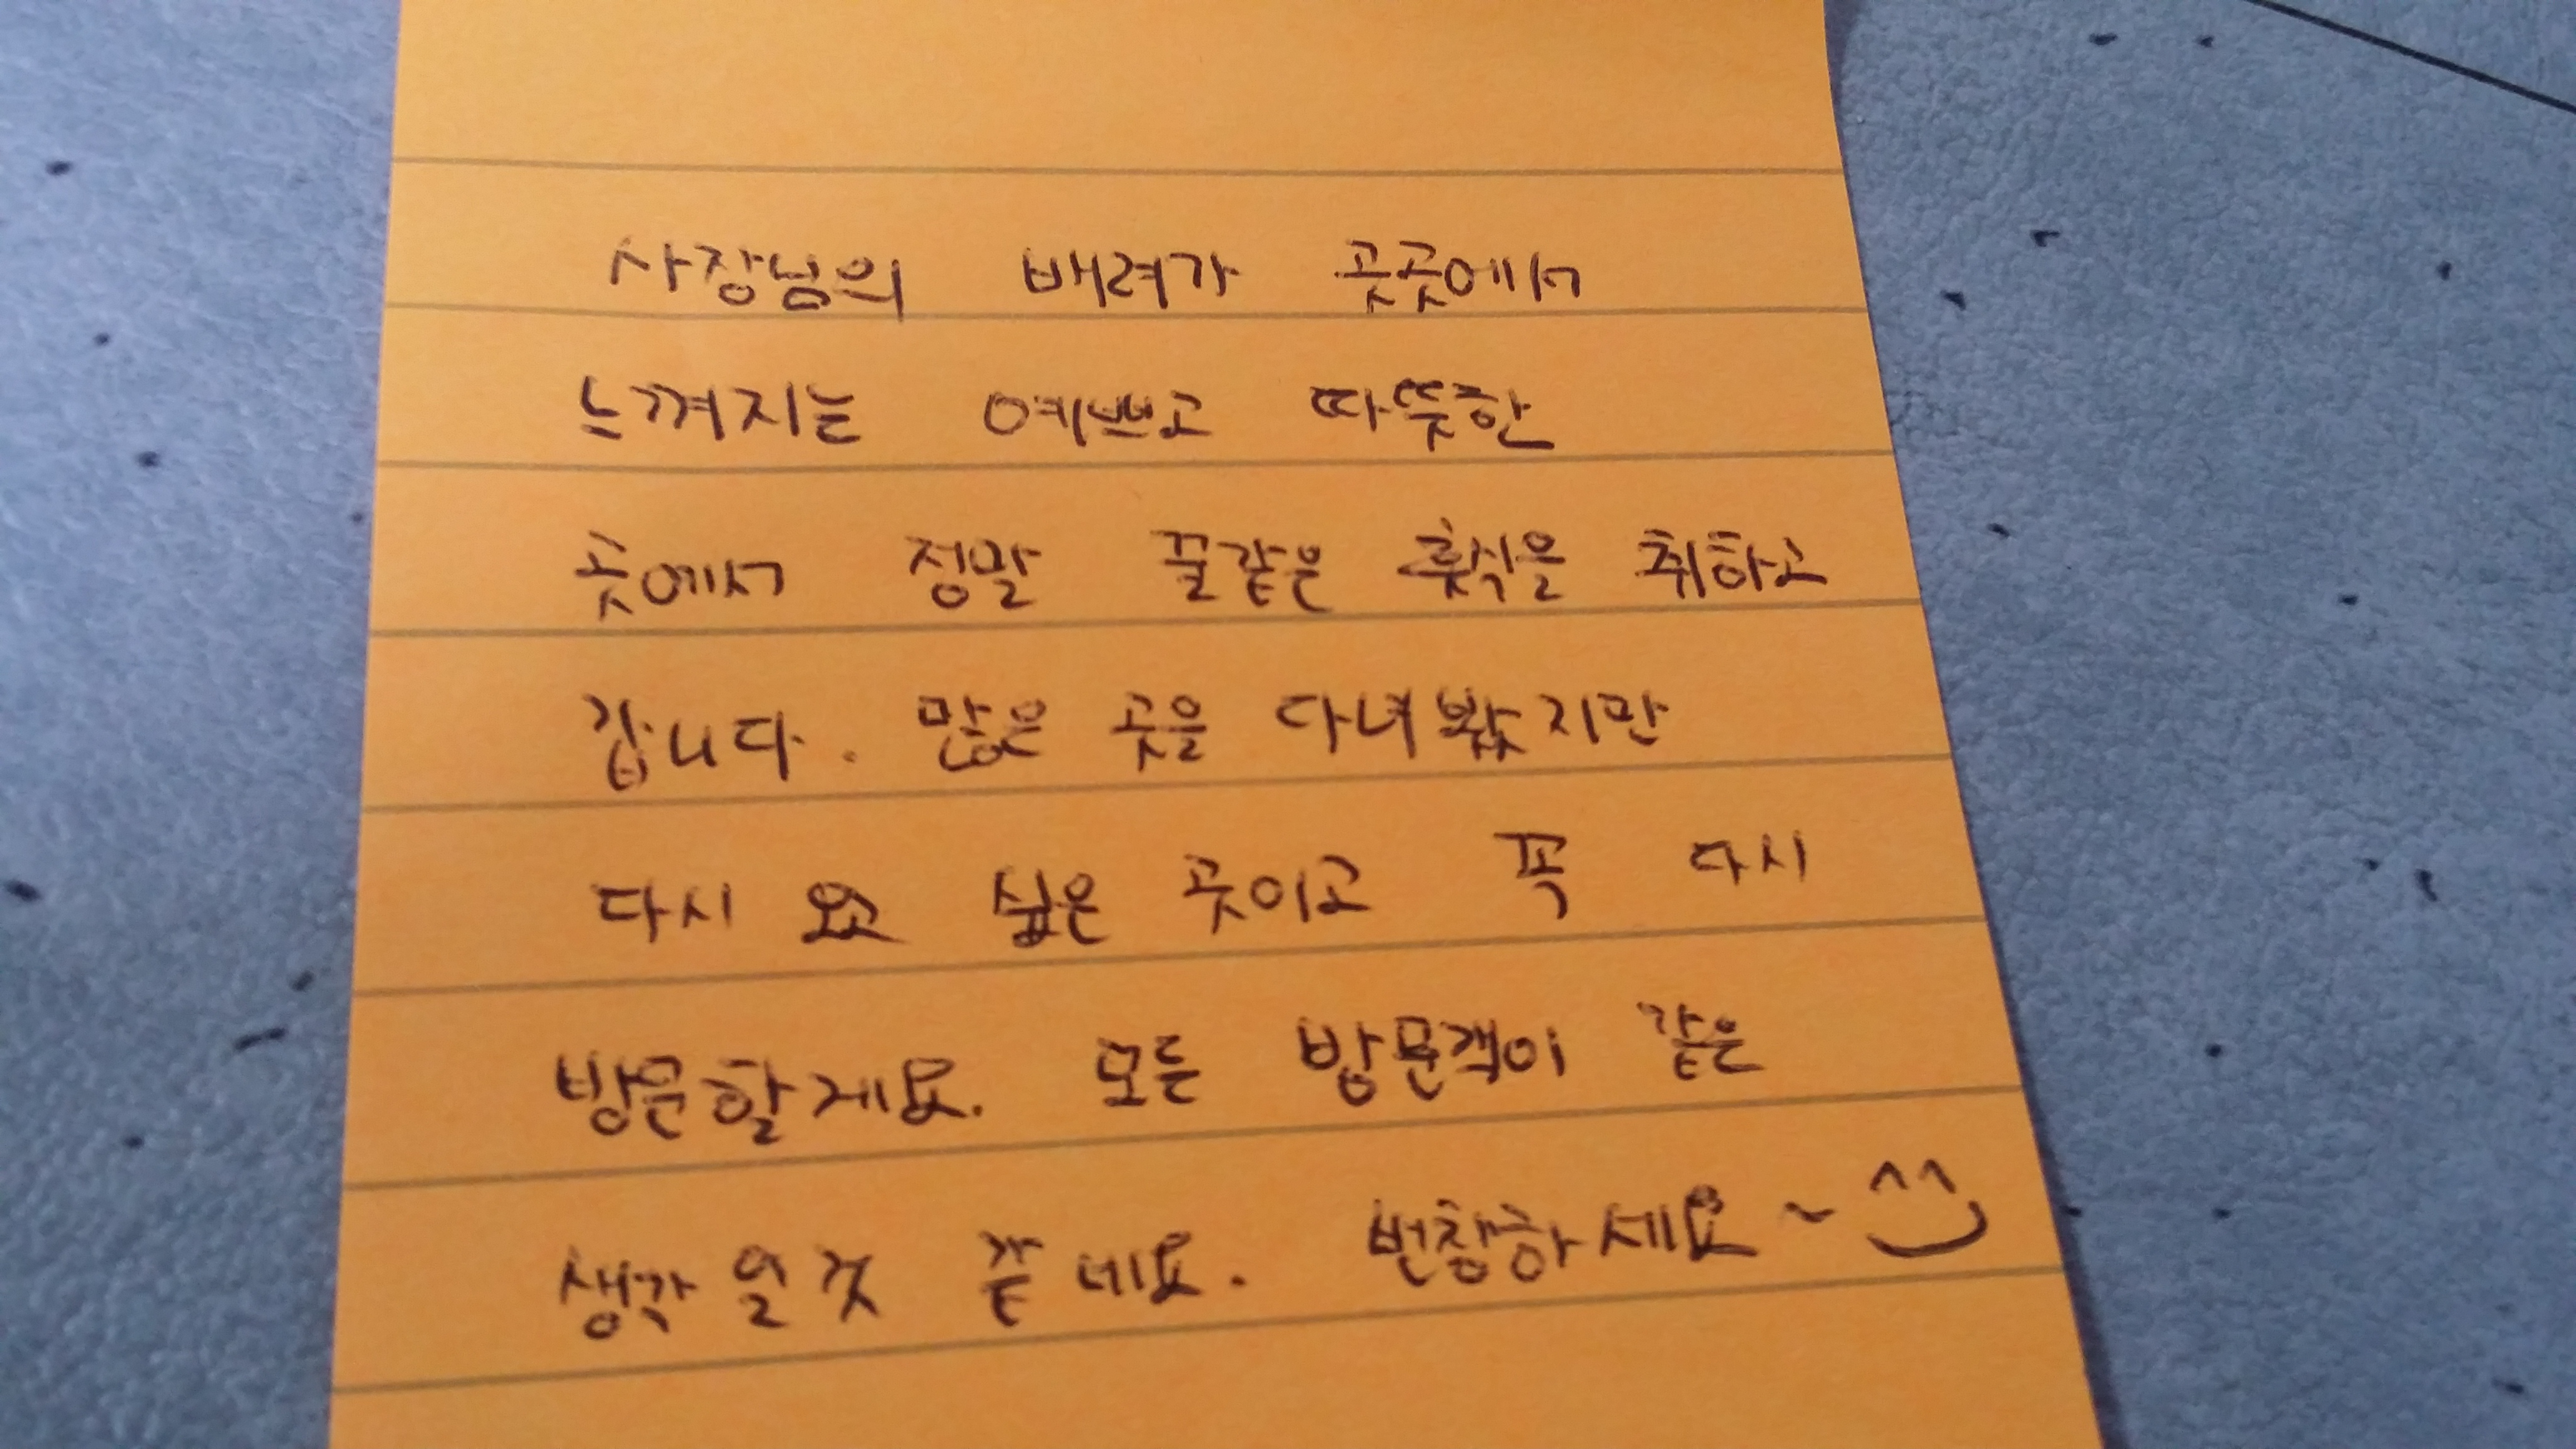 사장님의 배려가 곳곳에서
느껴지는 예쁘고 따뜻한
곳에서 정말 꿀같은 휴식을 취하고
갑니다. 많은 곳을 다녀봤지만
다시 오고 싶은 곳이고 꼭 다시
방문할게요. 모든 방문객이 같은
생각일것 같네요. 번창하세요~ ^^